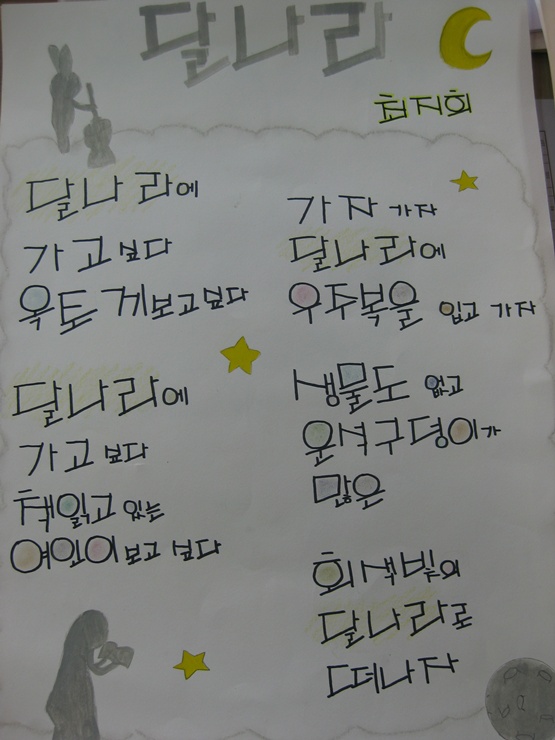 달나라
최지희
달나라에
가고싶다
옥토끼보고싶다
달나라에
가고싶다
책읽고 있는
여인이보고 싶다
가자 가자
달나라에
우주복을 입고 가자
생물도 없고
운석구덩이가
많은
회색빛의
달나라로
떠나자